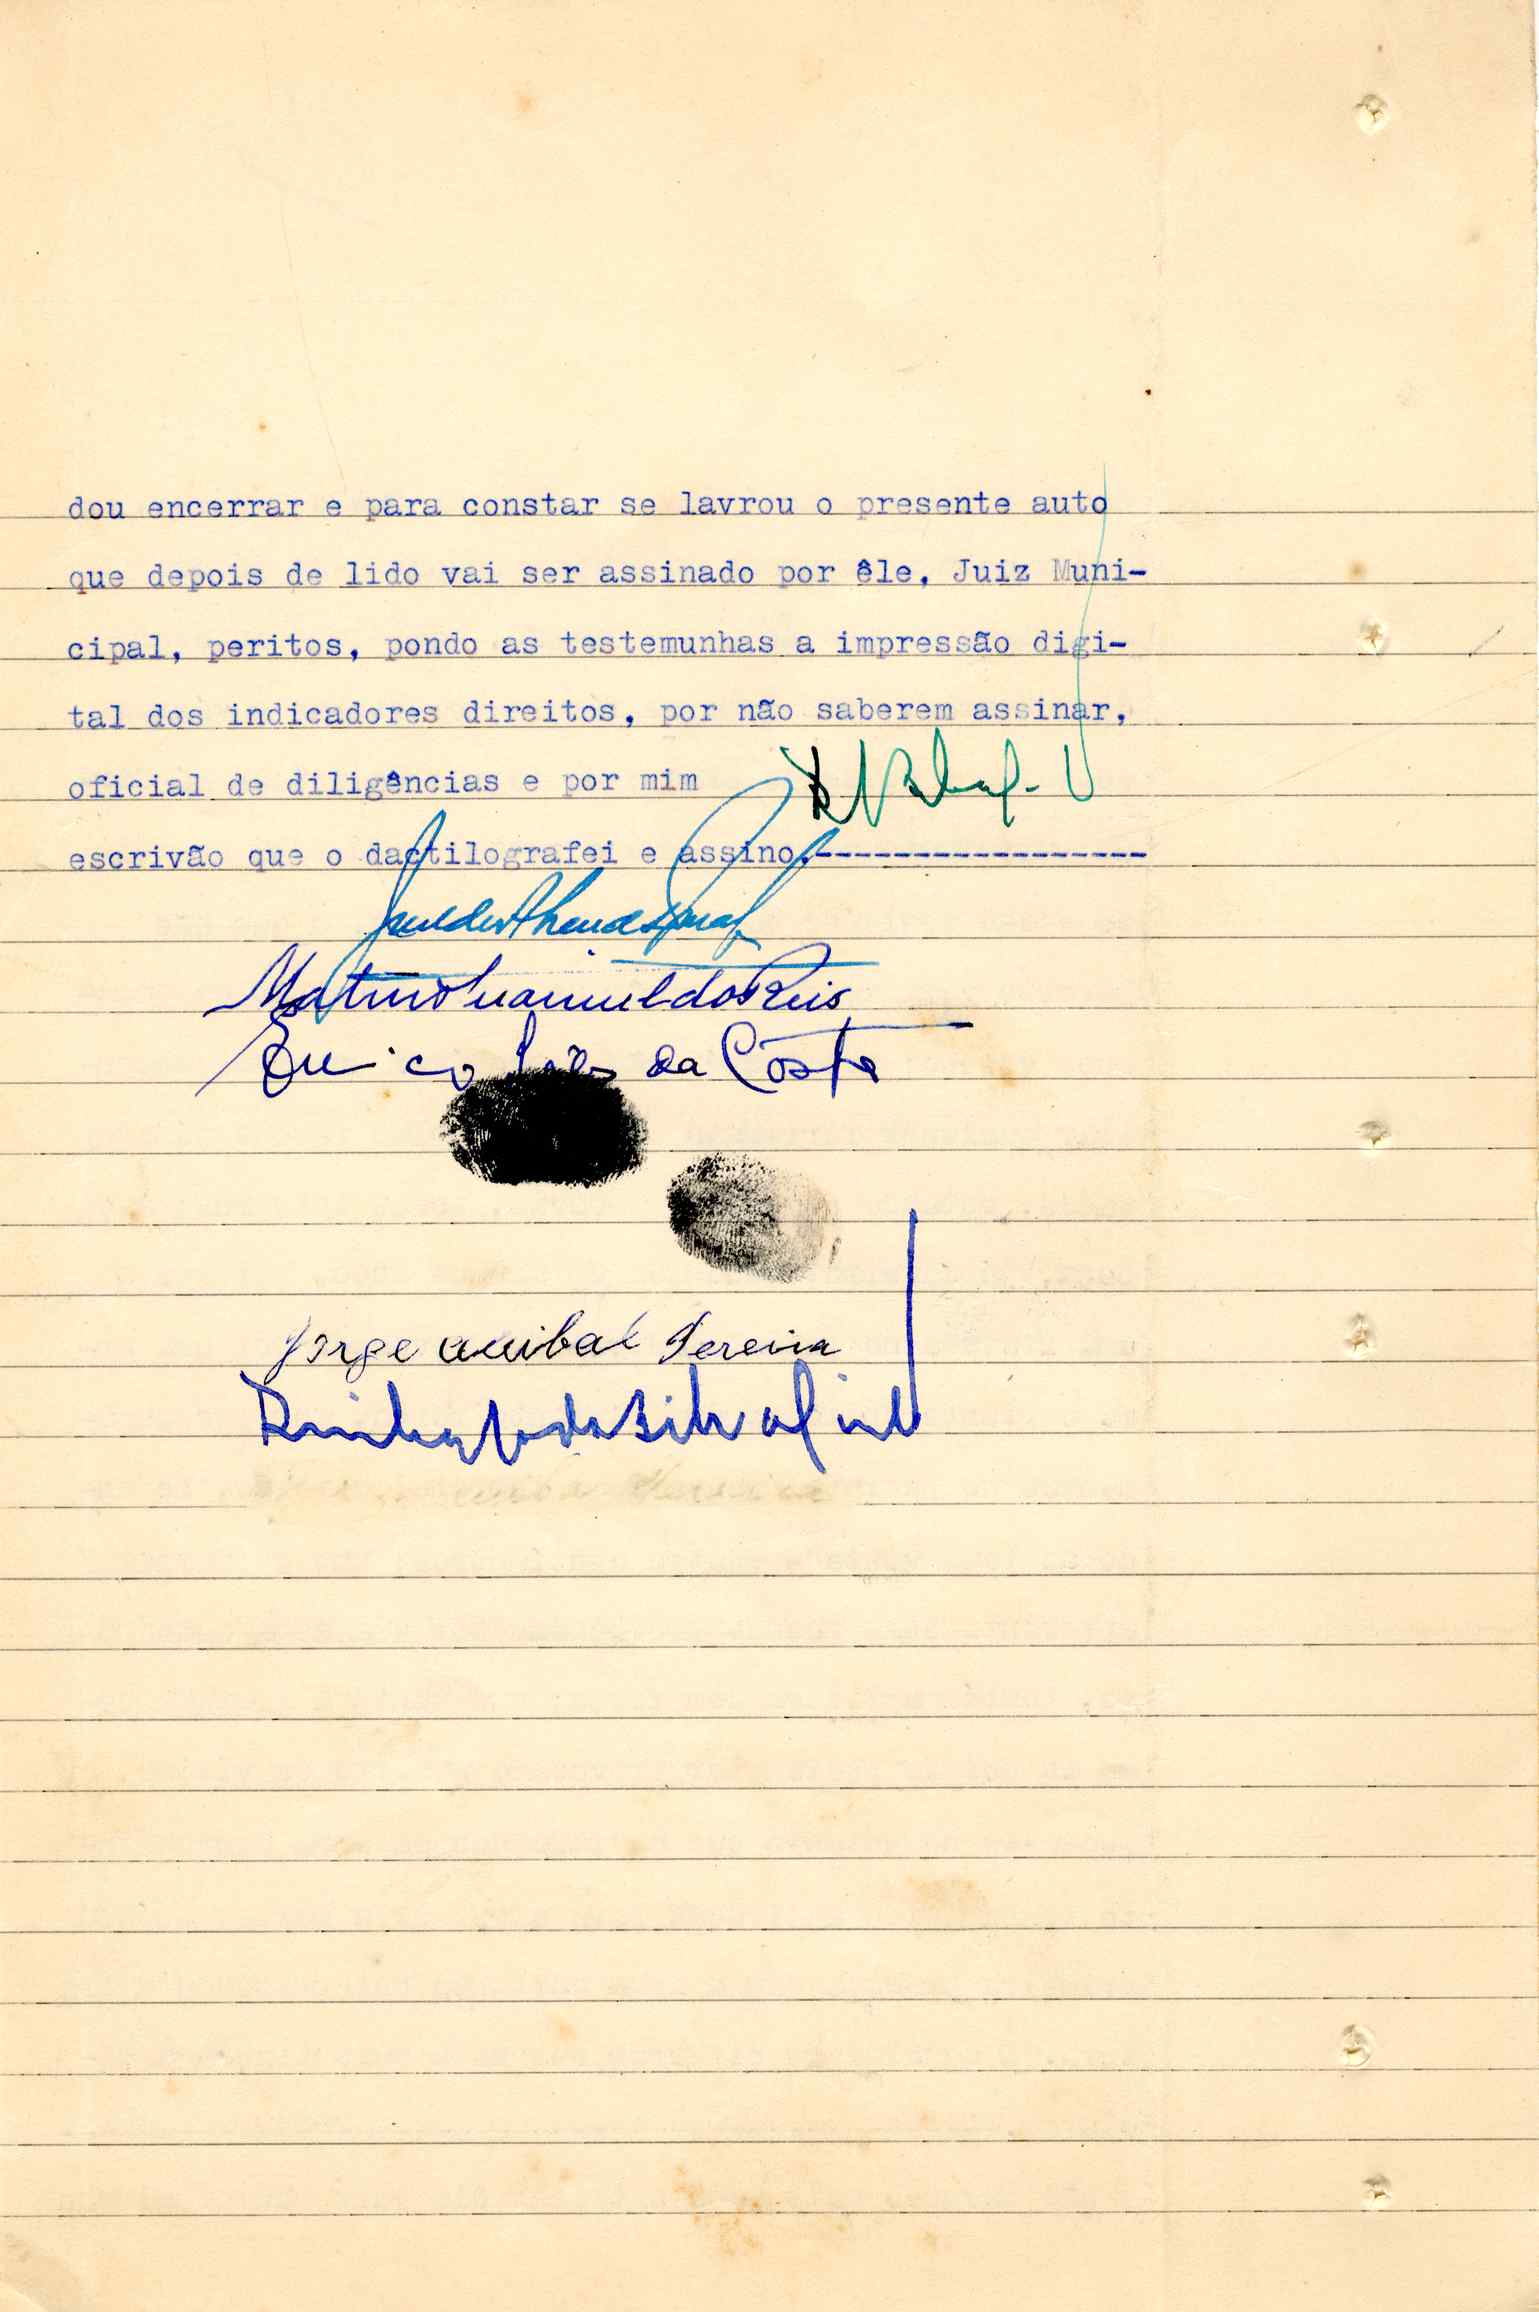 dou encerrar e para constar se lavrou o presente auto
que depois de lido vai ser assinado por êle, Juiz Muni-
cipal, peritos, pondo as testemunhas a impressão digi-
tal dos indicadores direitos, por não saberem assinar,
oficial de diligências e por mim
escrivão que o dactilografei e assino.-----------------
Manuel dos Reis
Eurico da Costa
Jorge Anibal Pereira
da Silva